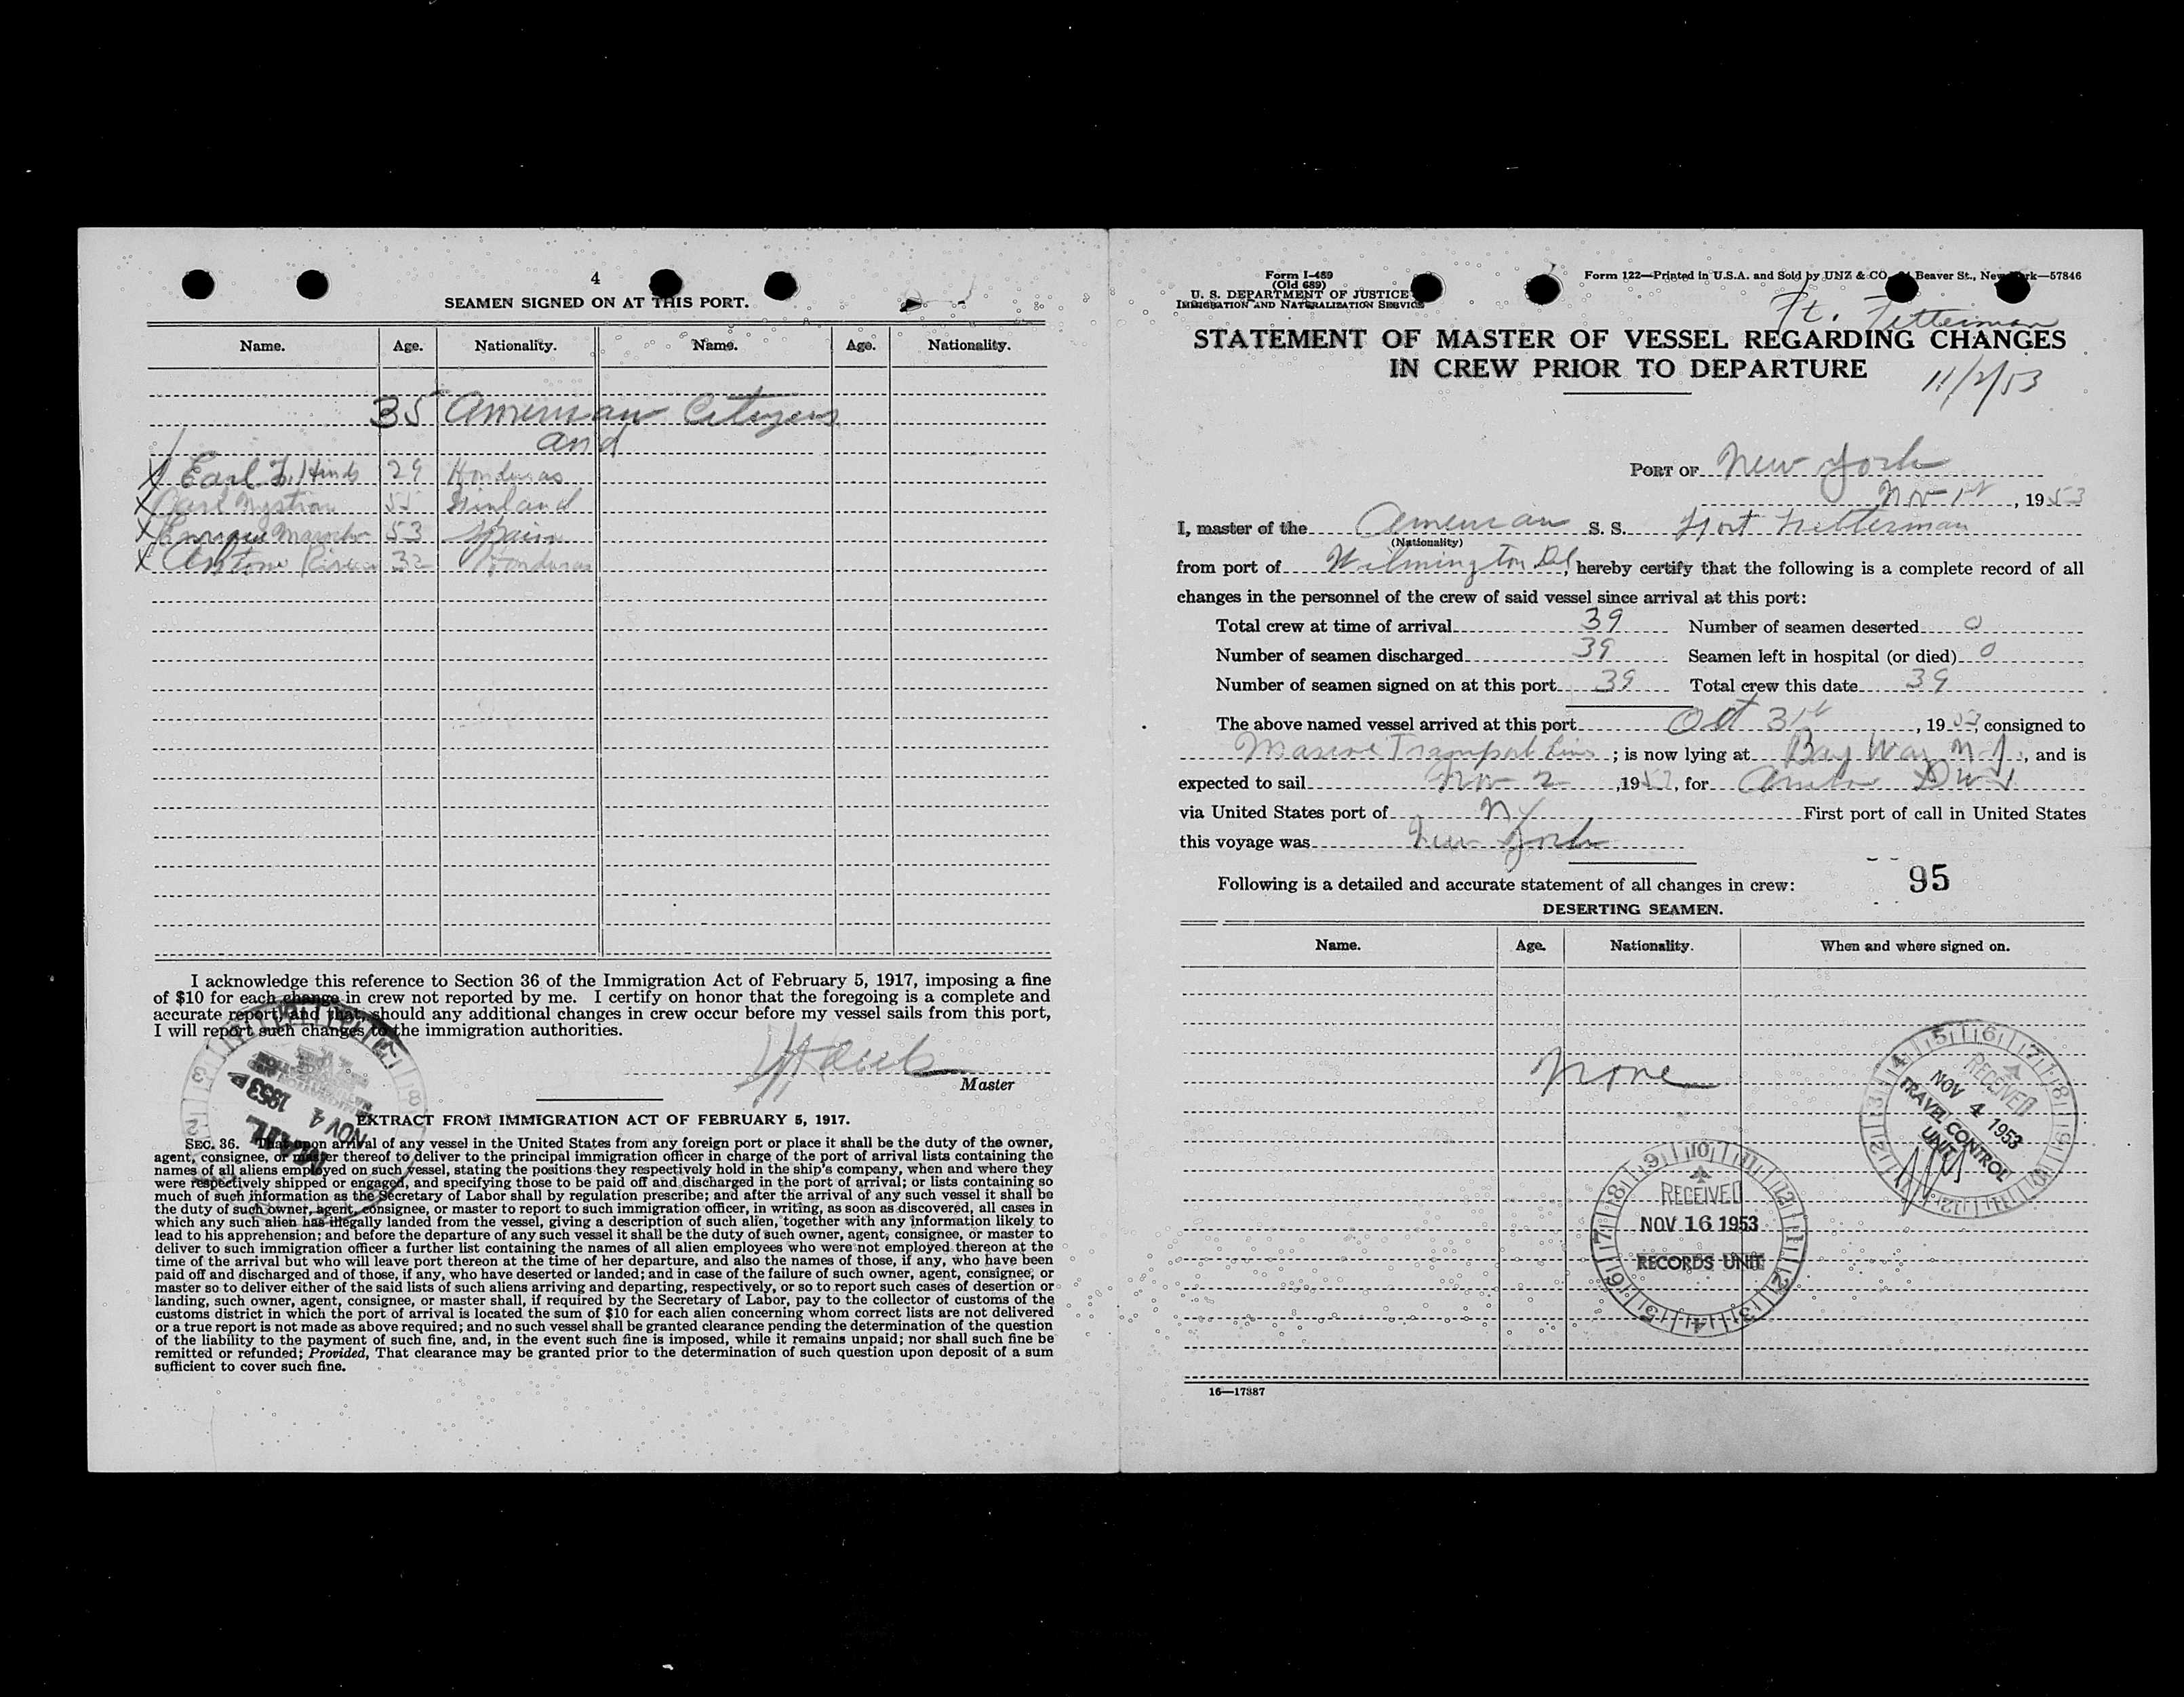 4
SEAMEN SIGNED ON AT THIS PORT.
Name. Age. Nationality. Name. Age. Nationality.
35 American Citizens
and
X Earl Hinds 29 Honduras
X Carl 55 Finland
X Enrique 53 Spain
X 32 Honduras
I acknowledge this reference to Section 36 of the Immigration Act of February 5, 1917, imposing a fine
of $10 for each change in crew not reported by me. I certify on honor that the foregoing is a complete and
accurate report, and that, should any additional changes in crew occur before my vessel sails from this port,
I will report such changes to the immigration authorities.
Master
EXTRACT FROM IMMIGRATION ACT OF FEBRUARY 5, 1917.
SEC. 36. That upon arrival of any vessel in the United States from any foreign port or place it shall be the duty of the owner,
agent, consignee, or master thereof to deliver to the principal immigration officer in charge of the port of arrival lists containing the
names of all aliens employed on such vessel, stating the positions they respectively hold in the ship's company, when and where they
were respectively shipped or engaged, and specifying those to be paid off and discharged in the port of arrival; or lists containing so
much of such information as the Secretary of Labor shall by regulation prescribe; and after the arrival of any such vessel it shall be
the duty of such owner, agent, consignee, or master to report to such immigration officer, in writing, as soon as discovered, all cases in
which any such alien has illegally landed from the vessel, giving a description of such alien, together with any information likely to
lead to his apprehension; and before the departure of any such vessel it shall be the duty of such owner, agent, consignee, or master to
deliver to such immigration officer a further list containing the names of all alien employees who were not employed thereon at the
time of the arrival but who will leave port thereon at the time of her departure, and also the names of those, if any, who have been
paid off and discharged and of those, if any, who have deserted or landed; and in case of the failure of such owner, agent, consignee, or
master so to deliver either of the said lists of such aliens arriving and departing, respectively, or so to report such cases of desertion or
landing, such owner, agent, consignee, or master shall, if required by the Secretary of Labor, pay to the collector of customs of the
customs district in which the port of arrival is located the sum of $10 for each alien concerning whom correct lists are not delivered
or a true report is not made as above required; and no such vessel shall be granted clearance pending the determination of the question
of the liability to the payment of such fine, and, in the event such fine is imposed, while it remains unpaid; nor shall such fine be
remitted or refunded; Provided, That clearance may be granted prior to the determination of such question upon deposit of a sum
sufficient to cover such fine.
MAIL
NOV 4 1953 P
Form I-489
(Old 689)
U. S. DEPARTMENT OF JUSTICE
IMMIGRATION AND NATURALIZATION SERVICE
Form 122—Printed in U.S.A. and Sold by UNZ & CO. Beaver St., New York—57846
Ft. Fetterman
STATEMENT OF MASTER OF VESSEL REGARDING CHANGES
IN CREW PRIOR TO DEPARTURE
11/2/53
PORT OF New York
Nov 1st, 1953
I, master of the American S. S. Fort Fetterman
(Nationality)
from port of Wilmington Del, hereby certify that the following is a complete record of all
changes in the personnel of the crew of said vessel since arrival at this port:
Total crew at time of arrival 39 Number of seamen deserted 0
Number of seamen discharged 39 Seamen left in hospital (or died) 0
Number of seamen signed on at this port 39 Total crew this date 39
The above named vessel arrived at this port Oct 31st, 1953, consigned to
Marine Transport Lines; is now lying at Bay Way N.J., and is
expected to sail Nov 2, 1953, for Aruba DWI
via United States port of NY First port of call in United States
this voyage was New York
95
Following is a detailed and accurate statement of all changes in crew:
DESERTING SEAMEN.
Name. Age. Nationality. When and where signed on.
None
RECEIVED
NOV 4 1953
TRAVEL CONTROL
UNIT
RECEIVED
NOV 16 1953
RECORDS UNIT
16—17387